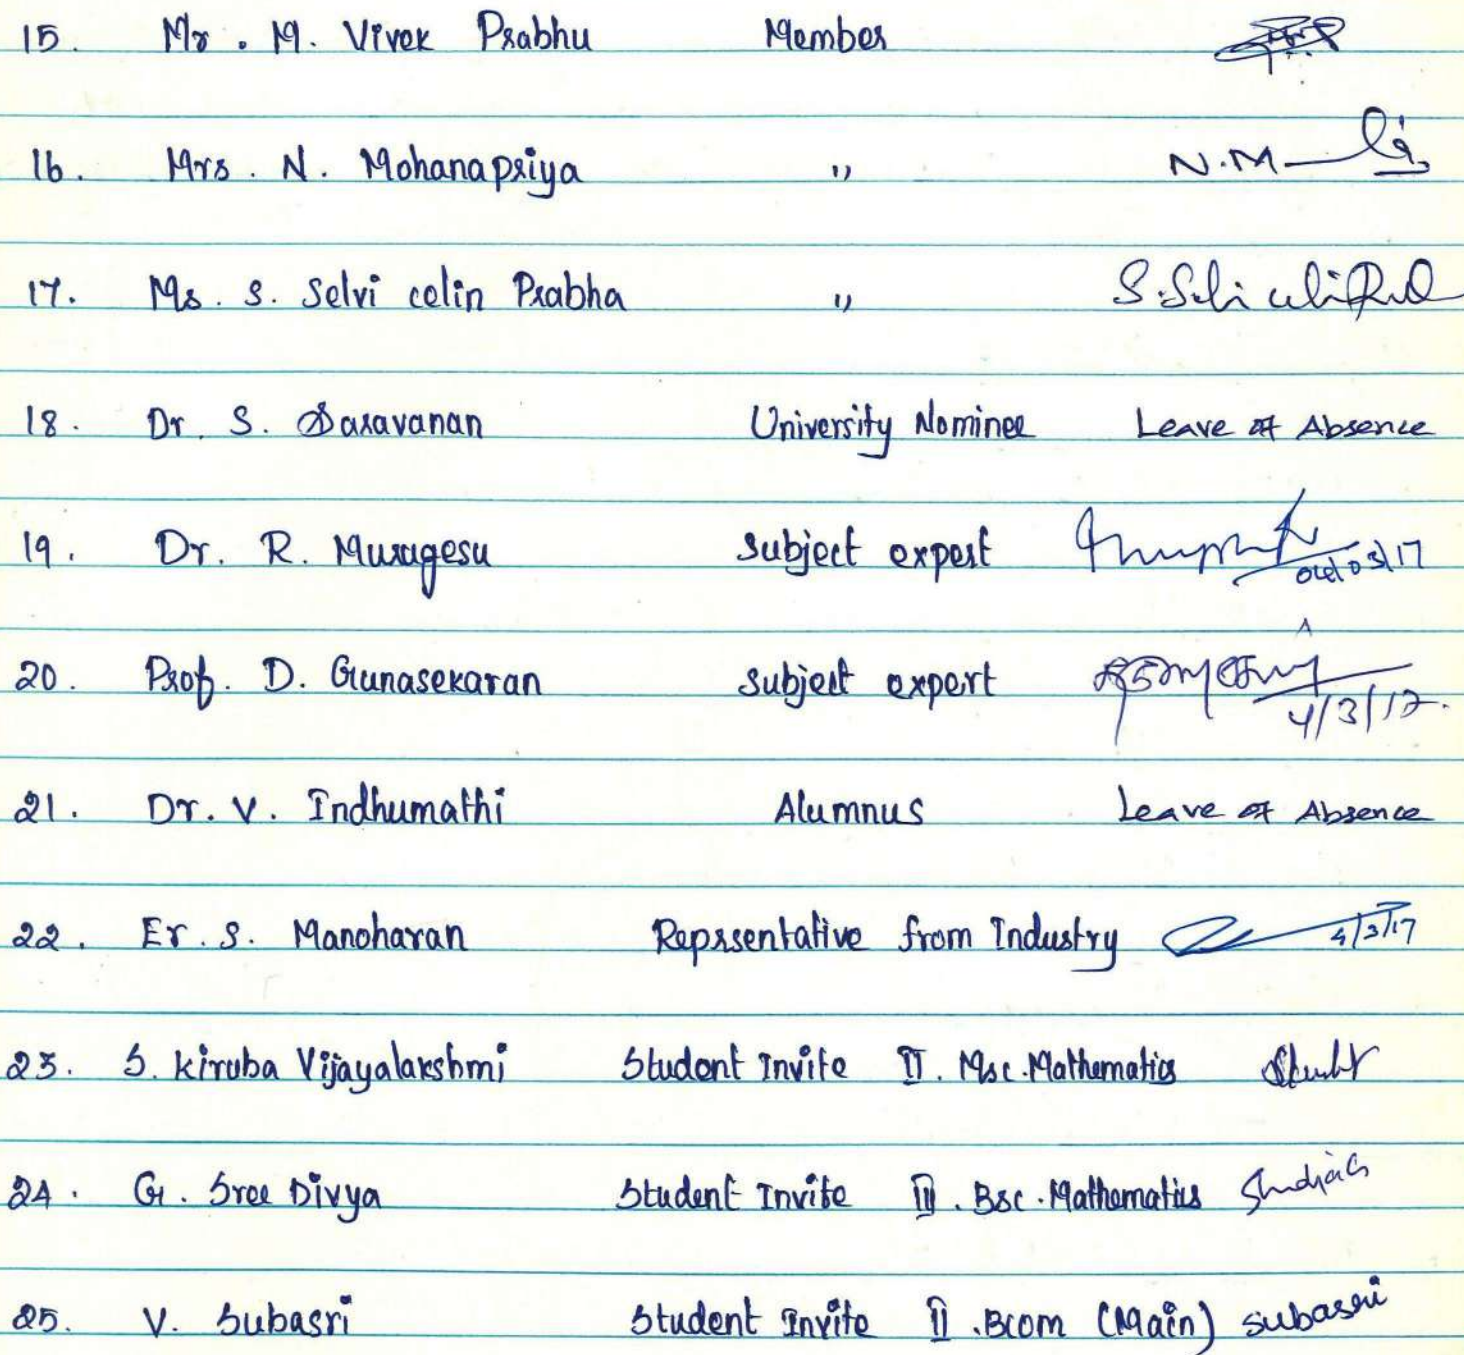 15. Mr. M. Vivek Prabhu Member
16. Mrs. N. Mohanapriya " N.M
17. Ms. S. Selvi celin Prabha "
18. Dr. S. Saravanan University Nominee Leave of Absence
19. Dr. R. Murugesu Subject expert 04/03/17
20. Prof. D. Gunasekaran Subject expert 4/3/17.
21. Dr. V. Indhumathi Alumnus Leave of Absence
22. Er. S. Manoharan Reprsentative from Industry 4/3/17
23. S. kiruba Vijayalakshmi Student Invite II. Msc. Mathematics
24. G. Sree Divya Student Invite III. Bsc. Mathematics
25. V. Subasri Student Invite II. Bcom (Main) Subasri